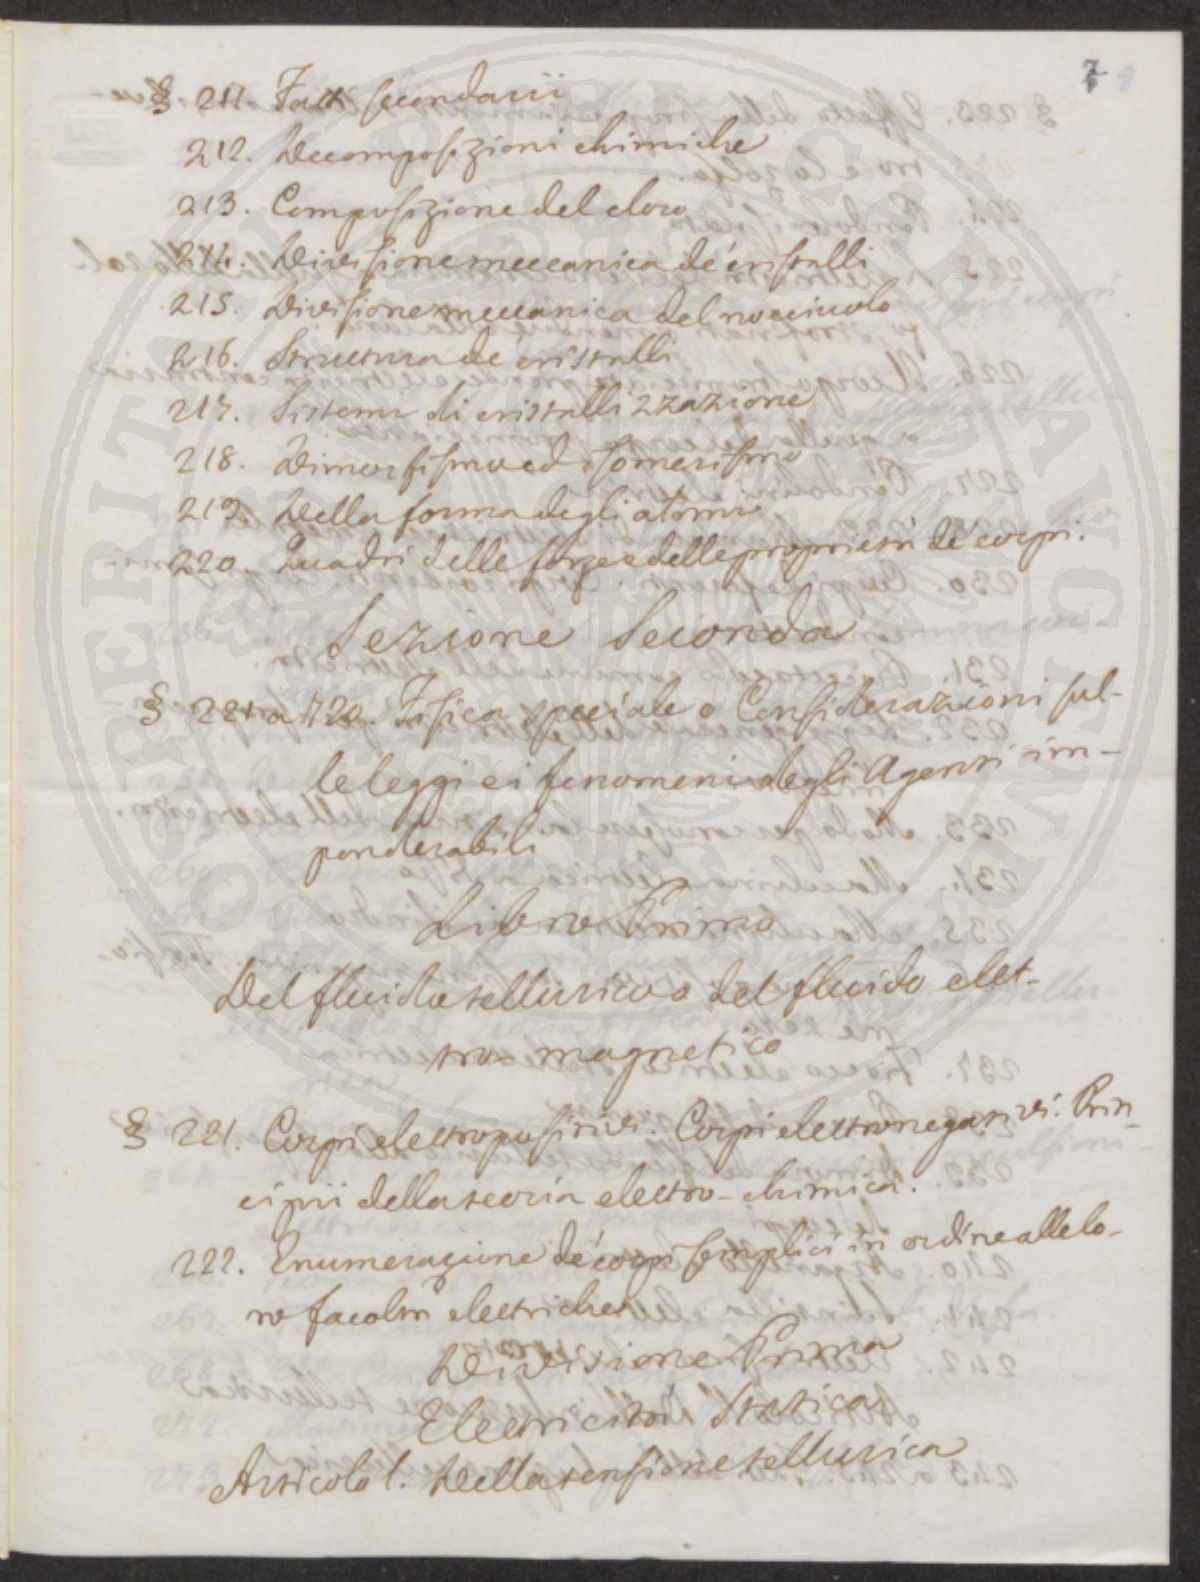 7
§ 211. Fatti secondarii
212. Decomposizioni chimiche
213. Composizione del cloro
214. Divisione meccanica de' cristalli
215. Divisione meccanica del nocciuolo
216. Struttura de cristalli
217. Sistemi di cristallizzazione
218. Dimorfismo ed isomerismo
219. Della forma degli atomi
220. Quadri delle forze e delle proprietà de' corpi.
Sezione Seconda
§ 221 a 720. Fisica speciale o Considerazioni sul-
le leggi e i fenomeni degli Agenti im-
ponderabili
Libro Primo
Del fluido tellurico o del fluido elet-
tro magnetico
§ 221. Corpi elettropositivi. Corpi elettronegativi. Prin-
cipii della teoria elettro-chimica.
222. Enumerazione de' corpi semplici in ordine alle lo-
ro facoltà elettriche
Divisione Prima
Elettricità Statica
Articolo 1. Della tensione tellurica